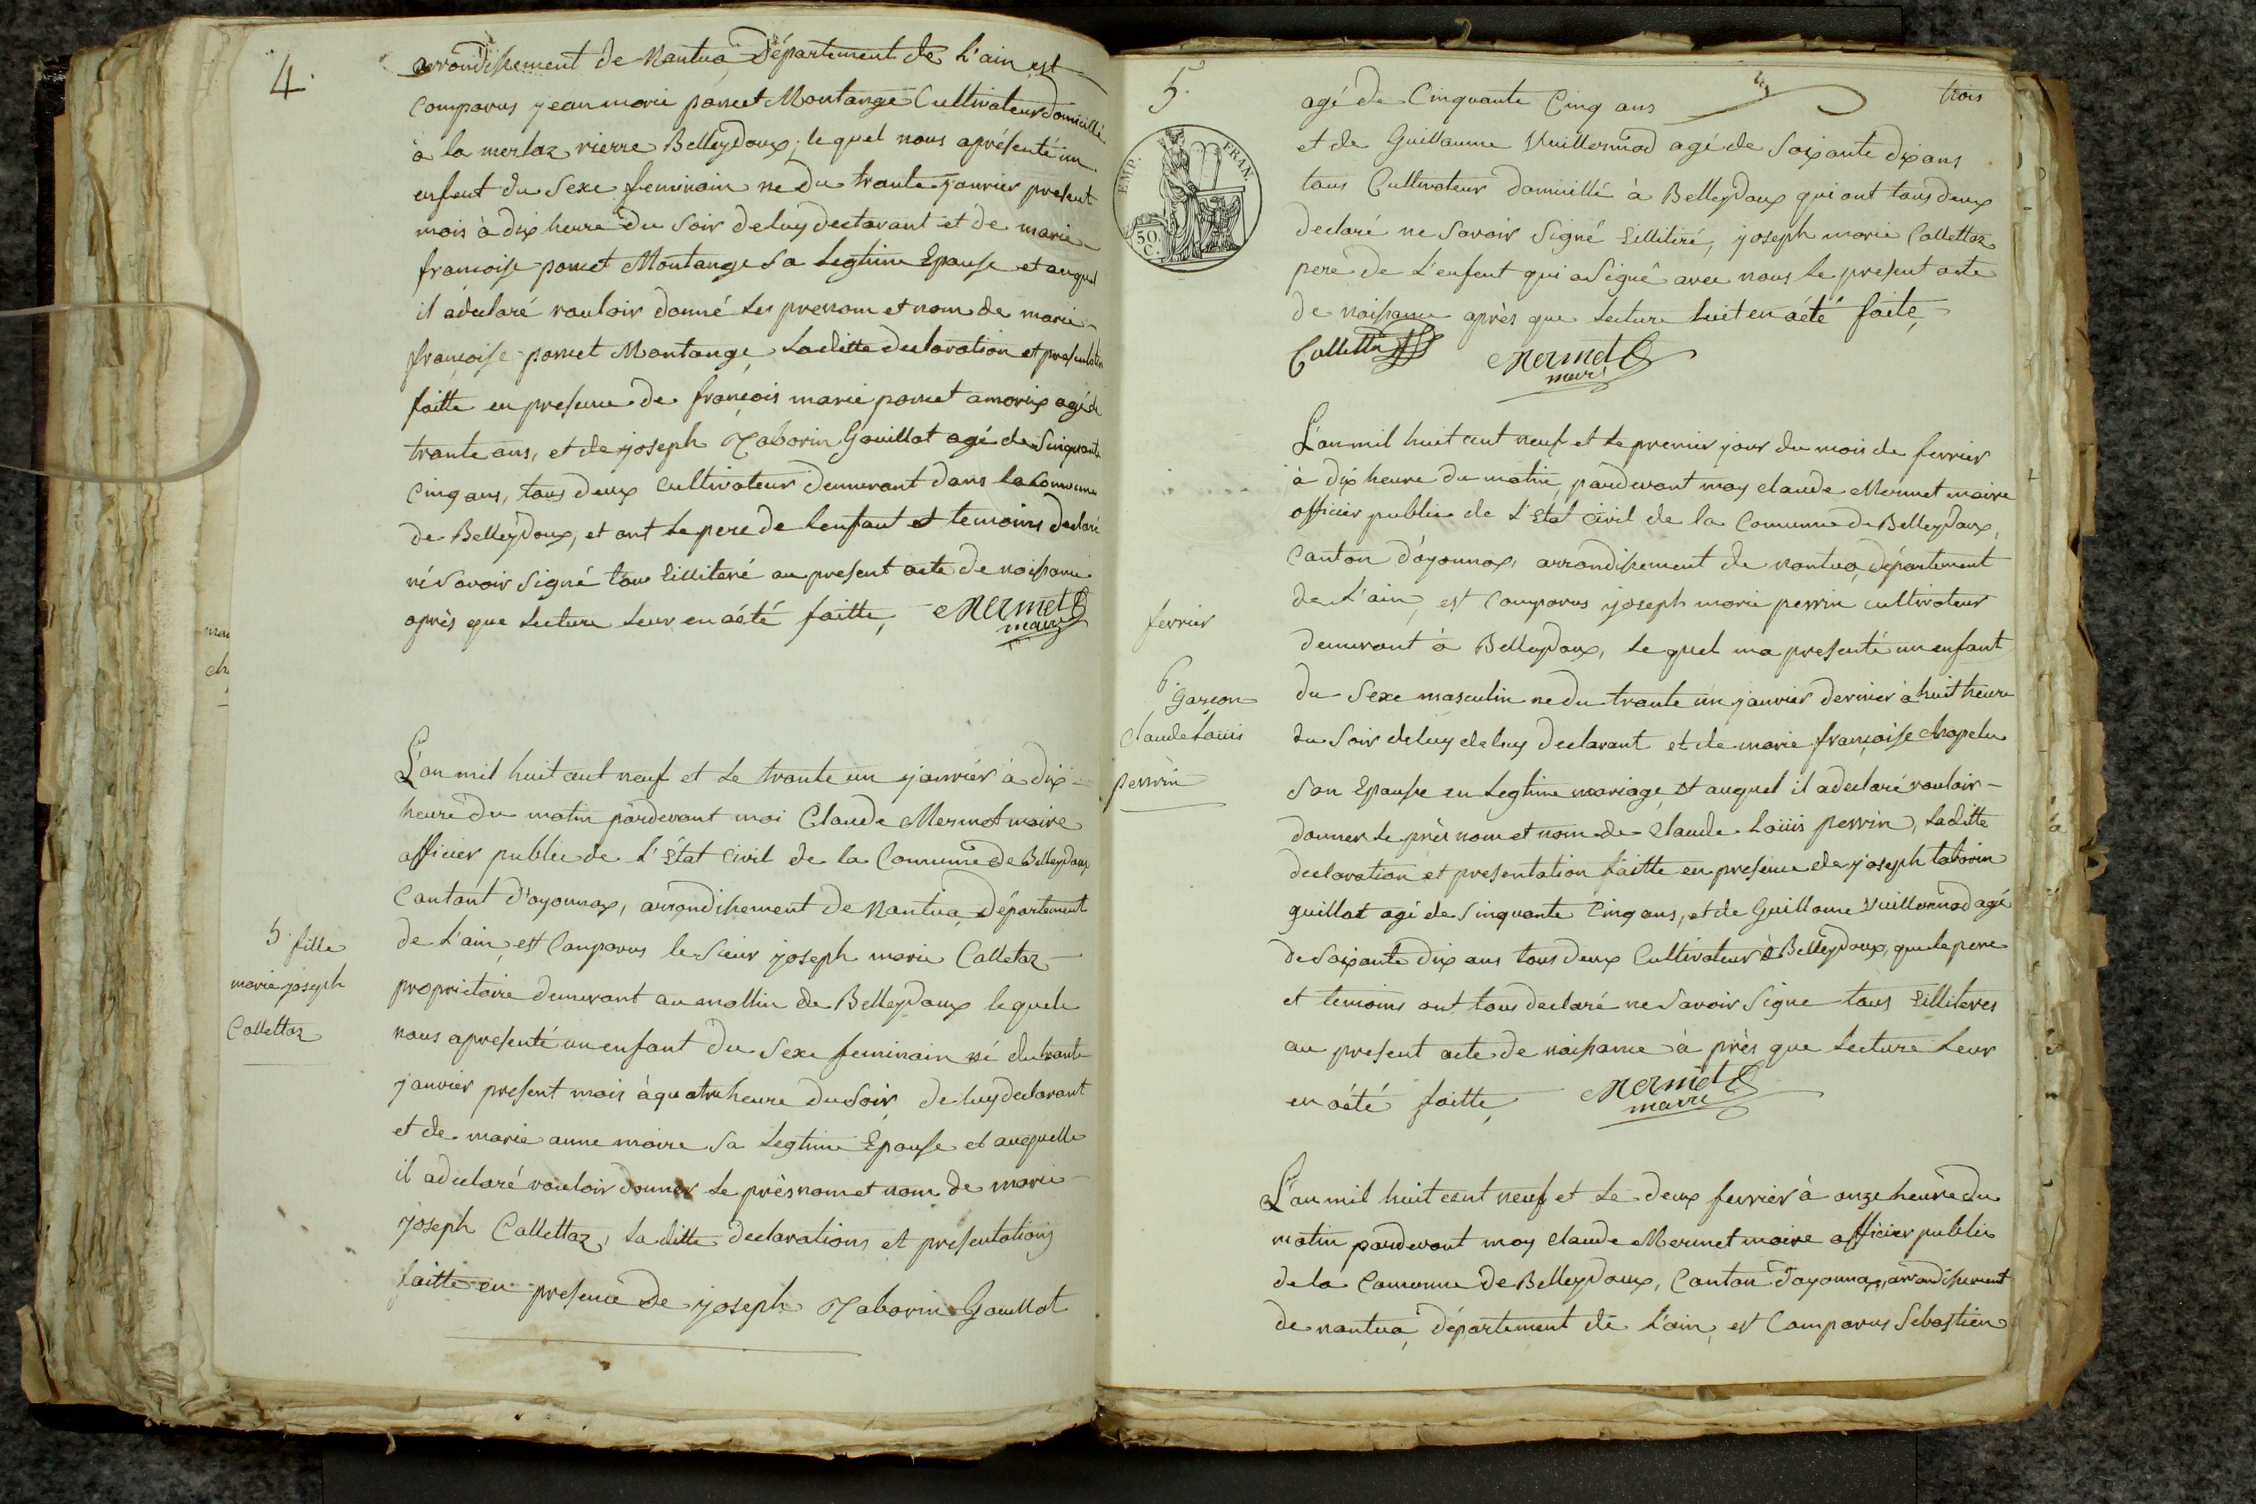 4.
arrondissement de Nantua, Département de L'ain, est
Comparus jean marie poncet Montange Cultivateur domicillé
à la merlaz rierre Belleydoux, le quel nous aprésenté un
enfent du Sexe feminain ne du trante janvier present
mois à dix heure du Soir deluy declarant et de marie
françoise poncet Montange Sa Legtime Epouse et auquel
il adeclaré vouloir donné Les prenom et nom de marie
françoise poncet Montange, Laditte declaration et presentation
faitte en presence de françois marie poncet amorix agé de
trante ans, et de joseph Taborin Gouillot agé de Sinquante
Cinq ans, tous deux Cultivateur demeurant dans la Comune
de Belleydoux, et ont le pere de Lenfant et temoins declaré
né Savoir Signé tous Eilliteré au present acte de naissance
après que Lecture Leur en aété faitte, Mermet
maire
L'an mil huit cent neuf et Le trante un janvier à dix
heure du matin pardevant moi Claude Mermet maire
officier public de L'Etat Civil de la Comune de Belleydoux
Cantant d'oyonnax, arrondissement de Nantua, Département
5. fille
de L'ain, est Comparus le Sieur joseph marie Calletaz
marie joseph
proprietaire demeurant au mollin de Belleydoux lequele
Collettaz
nous apresenté un enfant du Sexe feminain né du trante
janvier present mois à quatre heure du Soir, de luy declarant
et de marie anne maire Sa Legtime Epouse et auquelle
il adeclaré vouloir donner Le prèsnom et nom de marie
joseph Callettaz, La ditte declarations et presentations
faitte en presence de joseph Taborin Gouillot
5.
trois
EMP. FRAN.
50.
C.
agé de Cinquante Cinq ans
et de Guillaume Vuillermod agé de Soixante dix ans
tous Cultivateur domicillé à Belleydoux qui ont tous deux
declaré ne Savoir Signé Eilliteré, joseph marie Callettaz
pere de L'enfent qui a Signé avec nous Le present acte
de naissance après que Lecture Luit en aété faite,
Collettaz Mermet
maire
L'an mil huit cent neuf et Le premier jour du mois de fevrier
à dix heure du matin, pardevant moy claude Mermet maire
officier public de L'Etat Civil de la Comune de Belleydoux,
Canton d'oyonnax, arrondissement de nantua, département
de L'ain, est Comparus joseph marie perrin cultivateur
fevrier
demeurant à Belleydoux, Le quel ma presenté un enfant
6.
garçon
du Sexe masculin ne du trante un janvier dernier à huit heure
claude Louis
du Soir deluy deluy declarant et de marie françoise chapelu
perrin
Son Epouse en Legtime mariage, et auquel il adeclaré vouloir
donner Le près nom et nom de Claude Loüis perrin, Laditte
declaration et presentation faitte en presence de joseph taborin
guillot agé de Sinquante Cinq ans, et de Guillaume Vuillermod agé
de Soixante dix ans tous deux Cultivateur à Belleydoux, que le pere
et temoins ont tous declaré ne Savoir Signe tous Eilliteres
au present acte de naissance à près que Lecture Leur
en aété faitte, Mermet
maire
L'an mil huit cent neuf et Le deux fevrier à onze heure du
matin pardevant moy claude Mermet maire officier public
de la Comune de Belleydoux, Canton d'oyonnax, arrondissement
de nantua, département de L'ain, est Comparus Sebastien